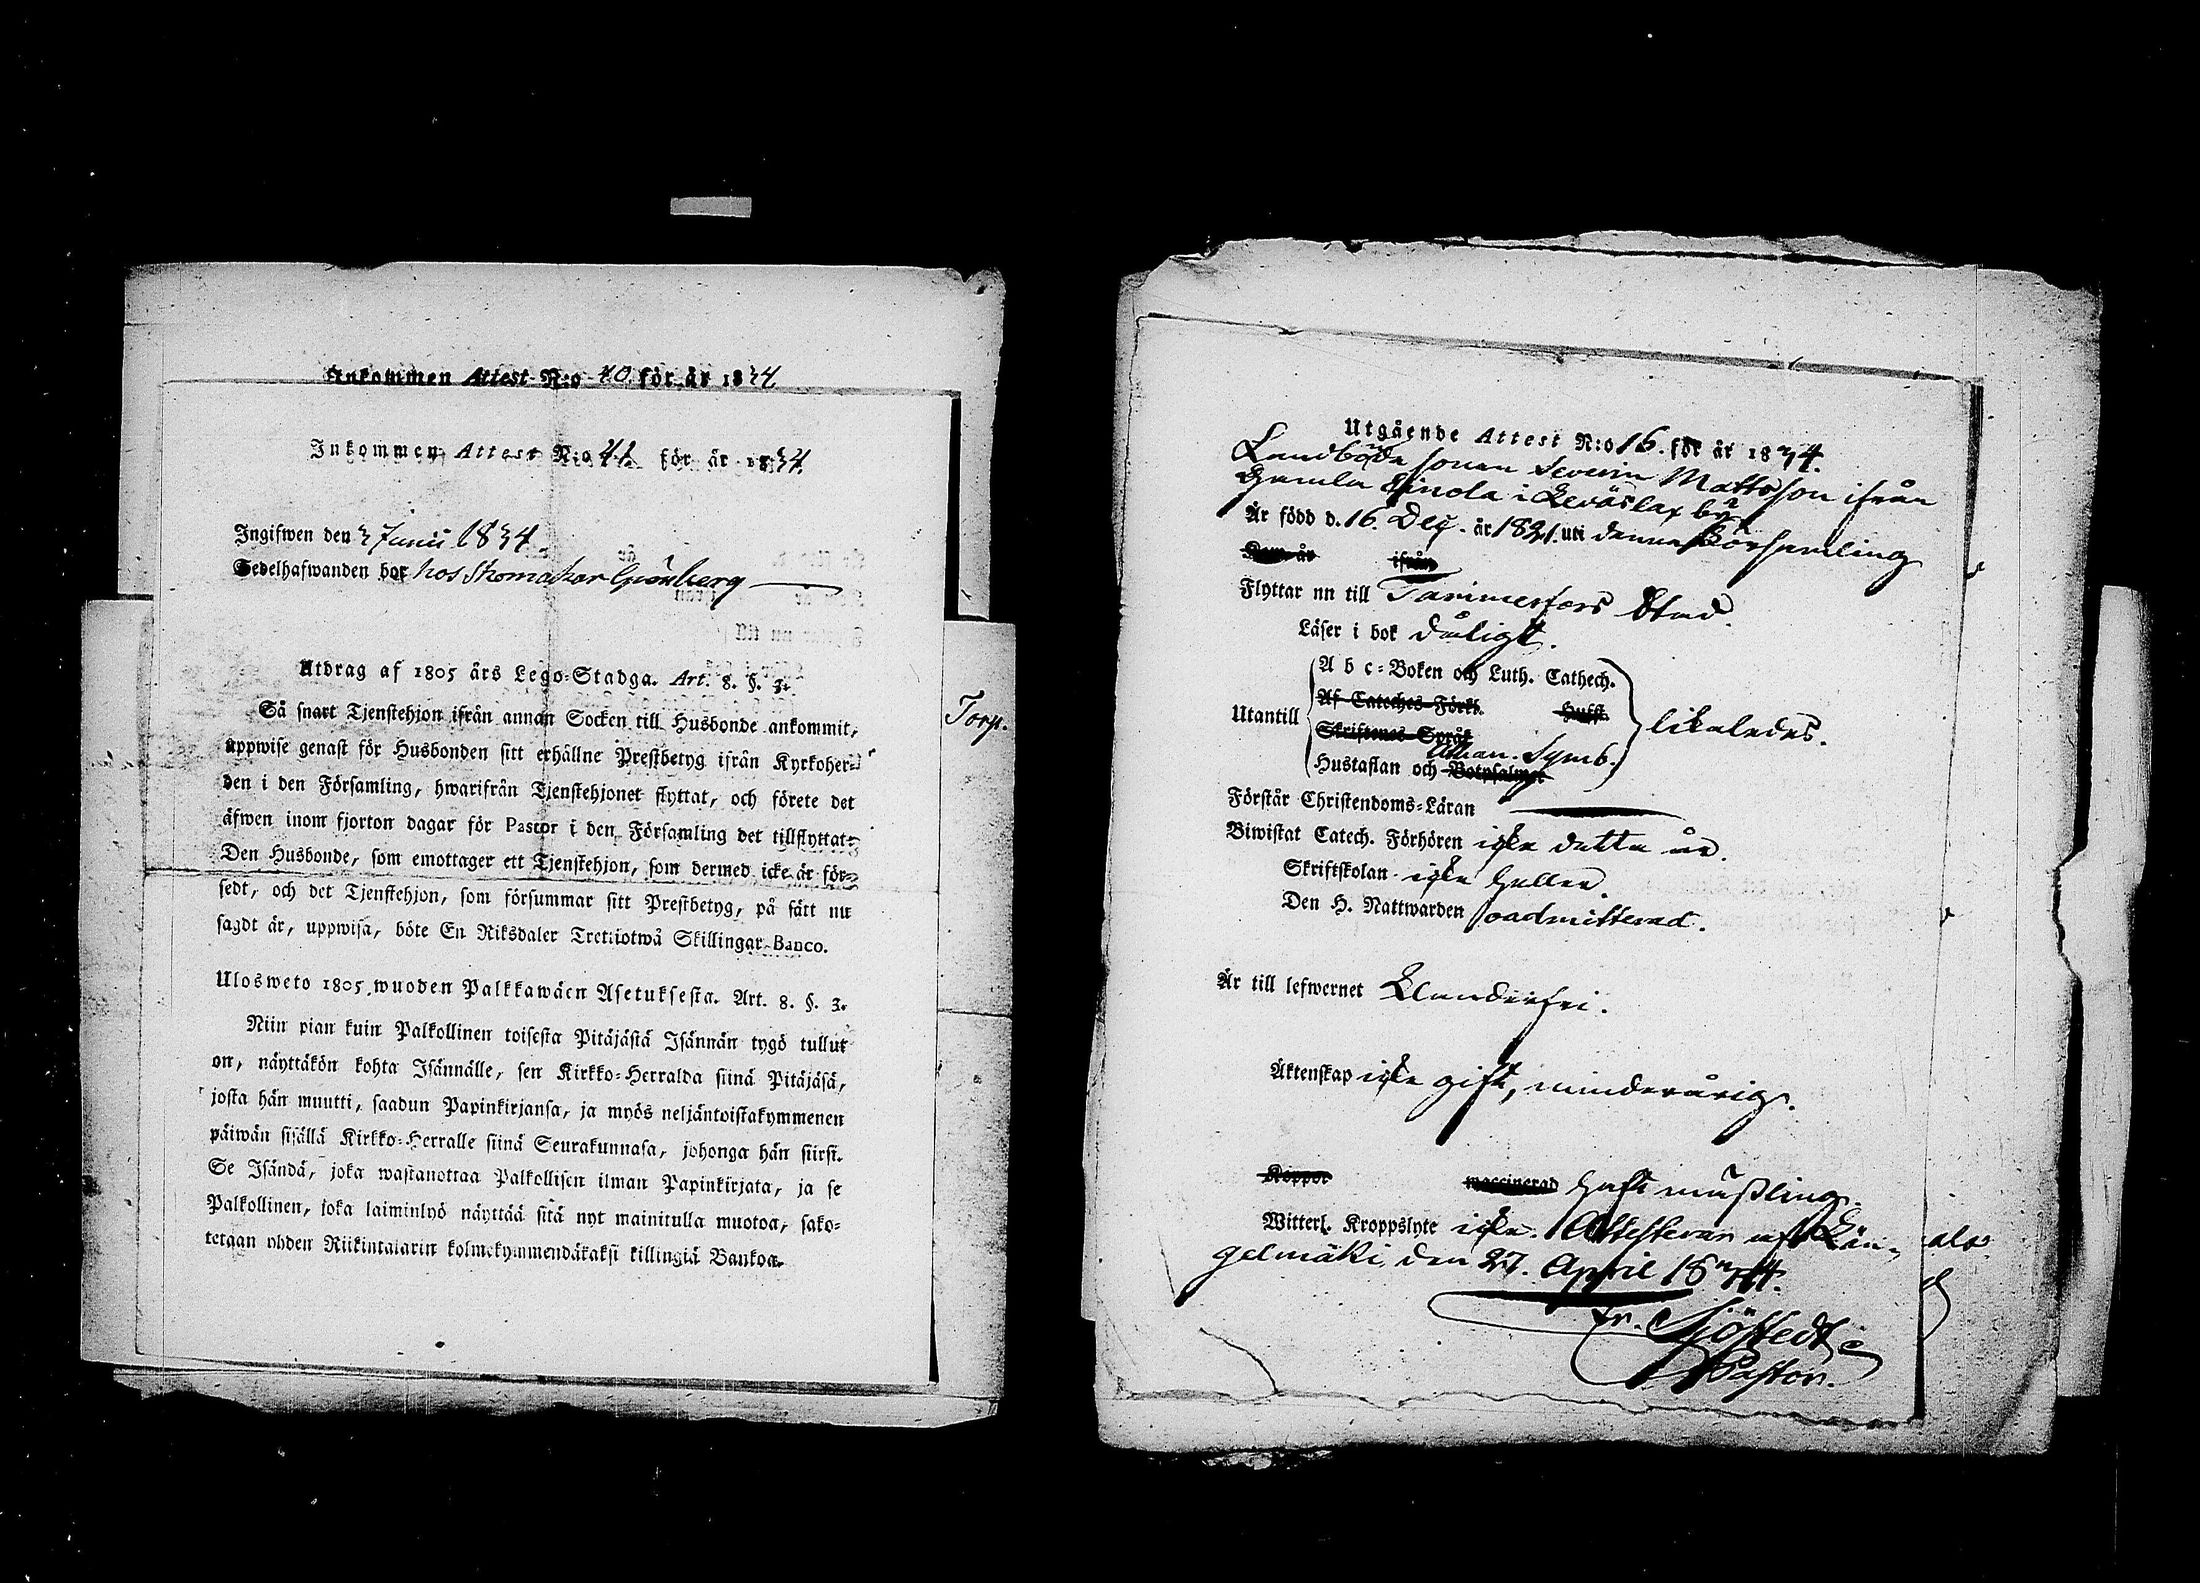 Ankommen Attest N:o 40. för år 1834.
Inkommen Attest N:o 41. för år 1834.
Ingifwen den 3 Junii 1834
Sedelhafwanden bor hos Skomakar Grönberg
Utdrag af 1805 års Lego-Stadga. Art. 8. §. 3.
Så snart Tjenstehjon ifrån annan Socken till Husbonde ankommit,
uppwise genast för Husbonden sitt erhållne Prestbetyg ifrån Kyrkoher-
den i den Församling, hwarifrån Tjenstehjonet flyttat, och förete det
äfwen inom fjorton dagar för Pastor i den Församling det tillflyttat.
Den Husbonde, som emottager ett Tjenstehjon, som dermed icke är för-
sedt, och det Tjenstehjon, som försummar sitt Prestbetyg, på sätt nu
sagdt är, uppwisa, böte En Riksdaler Trettiotwå Skillingar Banco.
Ulosweto 1805 wuoden Palkkawäen Asetuksesta. Art. 8. §. 3.
Niin pian kuin Palkollinen toisesta Pitäjästä Isännän tygö tullut
on, näyttäkön kohta Isännälle, sen Kirkko-Herralda siinä Pitäjäsä,
josta hän muutti, saadun Papinkirjansa, ja myös neljäntoistakymmenen
päiwän sisällä Kirkko-Herralle siinä Seurakunnasa, johonga hän siirsi.
Se Isändä, joka wastanottaa Palkollisen ilman Papinkirjata, ja se
Palkollinen, joka laiminlyö näyttää sitä nyt mainitulla muotoa, sako-
tetaan yhden Riikintalarin kolmekymmendäkaksi killingiä Bankoa.
Torp.
Utgående Attest N:o 16. för år 1834.
Landbonde sonen Severin Mattsson ifrån
Gamla Einola i Leväslax by
Är född d. 16. Dec. år 1821. uti denna Församling
Kom år ifrån
Flyttar nu till Tammerfors Stad.
Läser i bok dåligt.
A b c-Boken och Luth. Cathech.
Af Cateches Förkl. Hufst.
Utantill likaledes.
Skriftenes Språk
Athan. Symb.
Hustaflan och Botpsalmer
Förstår Christendoms-Läran
Biwistat Catech. Förhören icke detta år.
Skriftskolan icke heller.
Den H. Nattwarden oadmitterad.
Är till lefwernet klanderfri.
Äktenskap icke gift, minderårig.
Koppor waccinerad haft mäßling.
Witterl. Kroppslyte icke. Attesterar uti Län-
gelmäki den 27. April 1834.
Fr. Sjöstedt
Pastor.